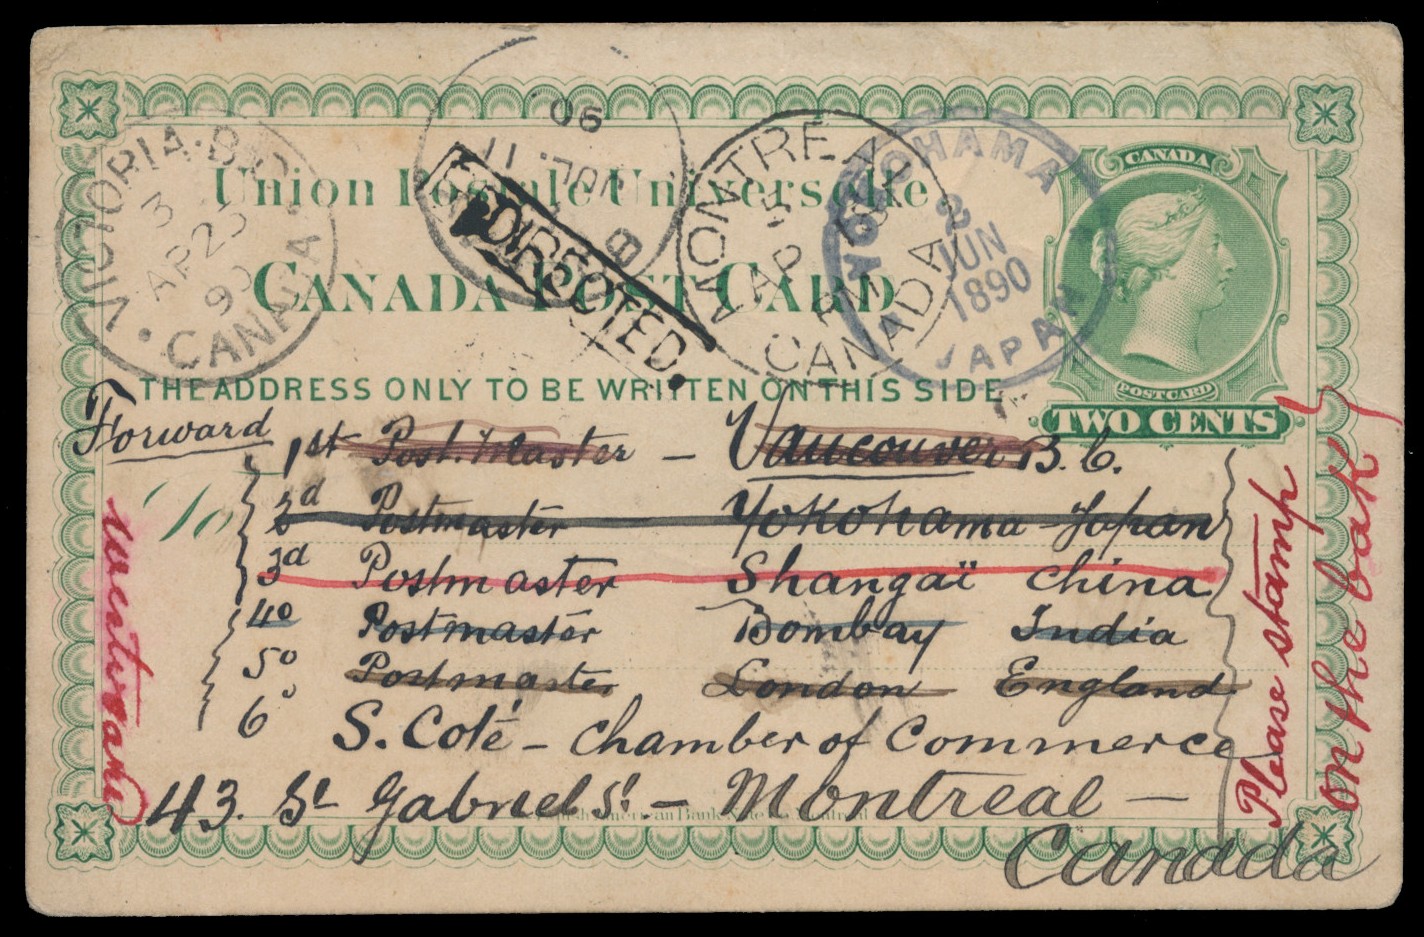 Union Postale Universelle
CANADA POST CARD
THE ADDRESS ONLY TO BE WRITTEN ON THIS SIDE
CANADA
POST CARD
TWO CENTS
VICTORIA·B.C.
3
AP 25
90
CANADA
90
JUL 11
B
REDIRECTED.
MONTREAL
AP
CANADA
YOKOHAMA
2
JUN
1890
JAPAN
Forward
To
1st Post. Master – Vancouver B.C.
2d Postmaster Yokohama – Japan
3d Postmaster Shangaï China
4o Postmaster Bombay India
5o Postmaster London England
6o S. Coté – Chamber of Commerce
43. St Gabriel St – Montreal –
Canada
Please stamp
on the bak